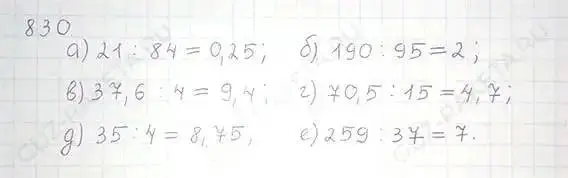 830.
а) 21 : 84 = 0,25; б) 190 : 95 = 2;
в) 37,6 : 4 = 9,4; г) 70,5 : 15 = 4,7;
д) 35 : 4 = 8,75; е) 259 : 37 = 7.